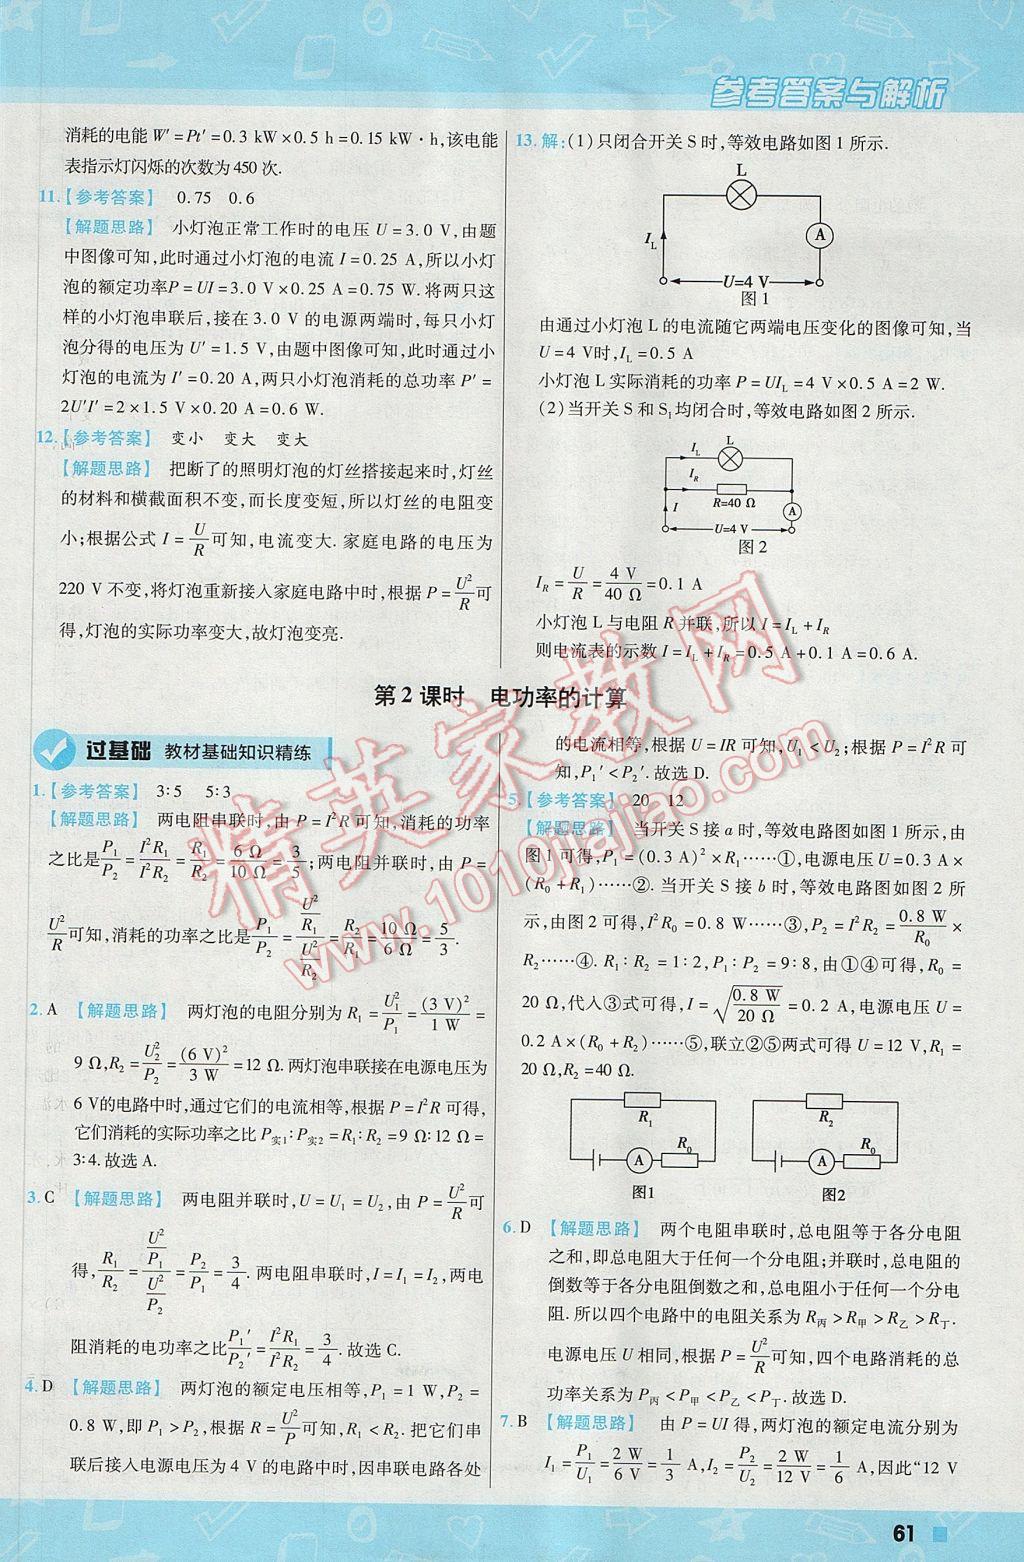 参考答案与解析
消耗的电能 W′=Pt′=0.3 kW×0.5 h=0.15 kW·h,该电能
表指示灯闪烁的次数为450次.
11.【参考答案】 0.75 0.6
【解题思路】 小灯泡正常工作时的电压 U=3.0 V,由题
中图像可知,此时通过小灯泡的电流 I=0.25 A,所以小灯
泡的额定功率P=UI=3.0 V×0.25 A=0.75 W. 将两只这
样的小灯泡串联后,接在 3.0 V 的电源两端时,每只小灯
泡分得的电压为 U′=1.5 V,由题中图像可知,此时通过小
灯泡的电流为 I′=0.20 A,两只小灯泡消耗的总功率 P′=
2U′I′=2×1.5 V×0.20 A=0.6 W.
12.【参考答案】 变小 变大 变大
【解题思路】 把断了的照明灯泡的灯丝搭接起来时,灯丝
的材料和横截面积不变,而长度变短,所以灯丝的电阻变
小;根据公式 I=U/R可知,电流变大. 家庭电路的电压为
220 V 不变,将灯泡重新接入家庭电路中时,根据 P=U²/R可
得,灯泡的实际功率变大,故灯泡变亮.
13.解:(1)只闭合开关 S 时,等效电路如图 1 所示.
L
I_L
A
U=4 V
图1
由通过小灯泡 L 的电流随它两端电压变化的图像可知,当
U=4 V时,I_L=0.5 A
小灯泡 L 实际消耗的功率 P=UI_L=4 V×0.5 A=2 W.
(2)当开关 S 和 S₁均闭合时,等效电路如图 2 所示.
L
I_L
I_R
R=40 Ω
I
A
U=4 V
图2
I_R=U/R=4 V/40 Ω=0.1 A
小灯泡 L 与电阻 R 并联,所以 I=I_L+I_R
则电流表的示数 I=I_L+I_R=0.5 A+0.1 A=0.6 A.
第2课时 电功率的计算
过基础 教材基础知识精练
1.【参考答案】 3∶5 5∶3
【解题思路】 两电阻串联时,由 P=I²R 可知,消耗的功率
之比是P₁/P₂=I²R₁/I²R₂=R₁/R₂=6 Ω/10 Ω=3/5;两电阻并联时,由 P=
U²/R可知,消耗的功率之比是P₁/P₂=(U²/R₁)/(U²/R₂)=R₂/R₁=10 Ω/6 Ω=5/3.
2. A 【解题思路】 两灯泡的电阻分别为 R₁=U₁²/P₁=(3 V)²/1 W=
9 Ω,R₂=U₂²/P₂=(6 V)²/3 W=12 Ω. 两灯泡串联在电源电压为
6 V的电路中时,通过它们的电流相等,根据 P=I²R 可得,
它们消耗的实际功率之比 P实1∶P实2=R₁∶R₂=9 Ω∶12 Ω=
3∶4. 故选 A.
3. C 【解题思路】 两电阻并联时,U=U₁=U₂,由 P=U²/R可
得,R₁/R₂=(U²/P₁)/(U²/P₂)=P₂/P₁=3/4. 两电阻串联时,I=I₁=I₂,两电
阻消耗的电功率之比P₁′/P₂′=I²R₁/I²R₂=3/4. 故选 C.
4. D 【解题思路】 两灯泡的额定电压相等,P₁=1 W,P₂=
0.8 W,即 P₁>P₂,根据 R=U²/P可知,R₁<R₂. 把它们串
联后接入电源电压为 4 V 的电路中时,因串联电路各处
的电流相等,根据 U=IR 可知,U₁<U₂;根据 P=I²R 可
知,P₁′<P₂′. 故选 D.
5.【参考答案】 20 12
【解题思路】 当开关 S 接 a 时,等效电路图如图 1 所示,由
图 1 可得,P₁=(0.3 A)²×R₁……①,电源电压 U=0.3 A×
(R₀+R₁)……②. 当开关 S 接 b 时,等效电路如图 2 所
示,由图 2 可得,I²R₀=0.8 W……③,P₂=I²R₂=0.8 W/R₀×
R₂……④. R₁∶R₂=1∶2,P₁∶P₂=9∶8,由①④可得,R₀=
20 Ω,代入③式可得,I=√(0.8 W/20 Ω)=0.2 A,电源电压 U=
0.2 A×(R₀+R₂)……⑤,联立②⑤两式可得 U=12 V,R₁=
20 Ω,R₂=40 Ω.
R₁
R₀
A
图1
R₂
R₀
A
图2
6. D 【解题思路】 两个电阻串联时,总电阻等于各分电阻
之和,即总电阻大于任何一个分电阻;并联时,总电阻的
倒数等于各分电阻倒数之和,总电阻小于任何一个分电
阻. 所以四个电路中的电阻关系为 R丙>R甲>R乙>R丁.
电源电压 U 相同,根据 P=U²/R可知,四个电路消耗的总
功率关系为 P丙<P甲<P乙<P丁. 故选 D.
7. B 【解题思路】 由 P=UI 得,两灯泡的额定电流分别为
I₁=P₁/U₁=2 W/6 V=1/3 A,I₂=P₂/U₂=2 W/12 V=1/6 A,因此“12 V
61
精英家教网
www.1010jiajiao.com